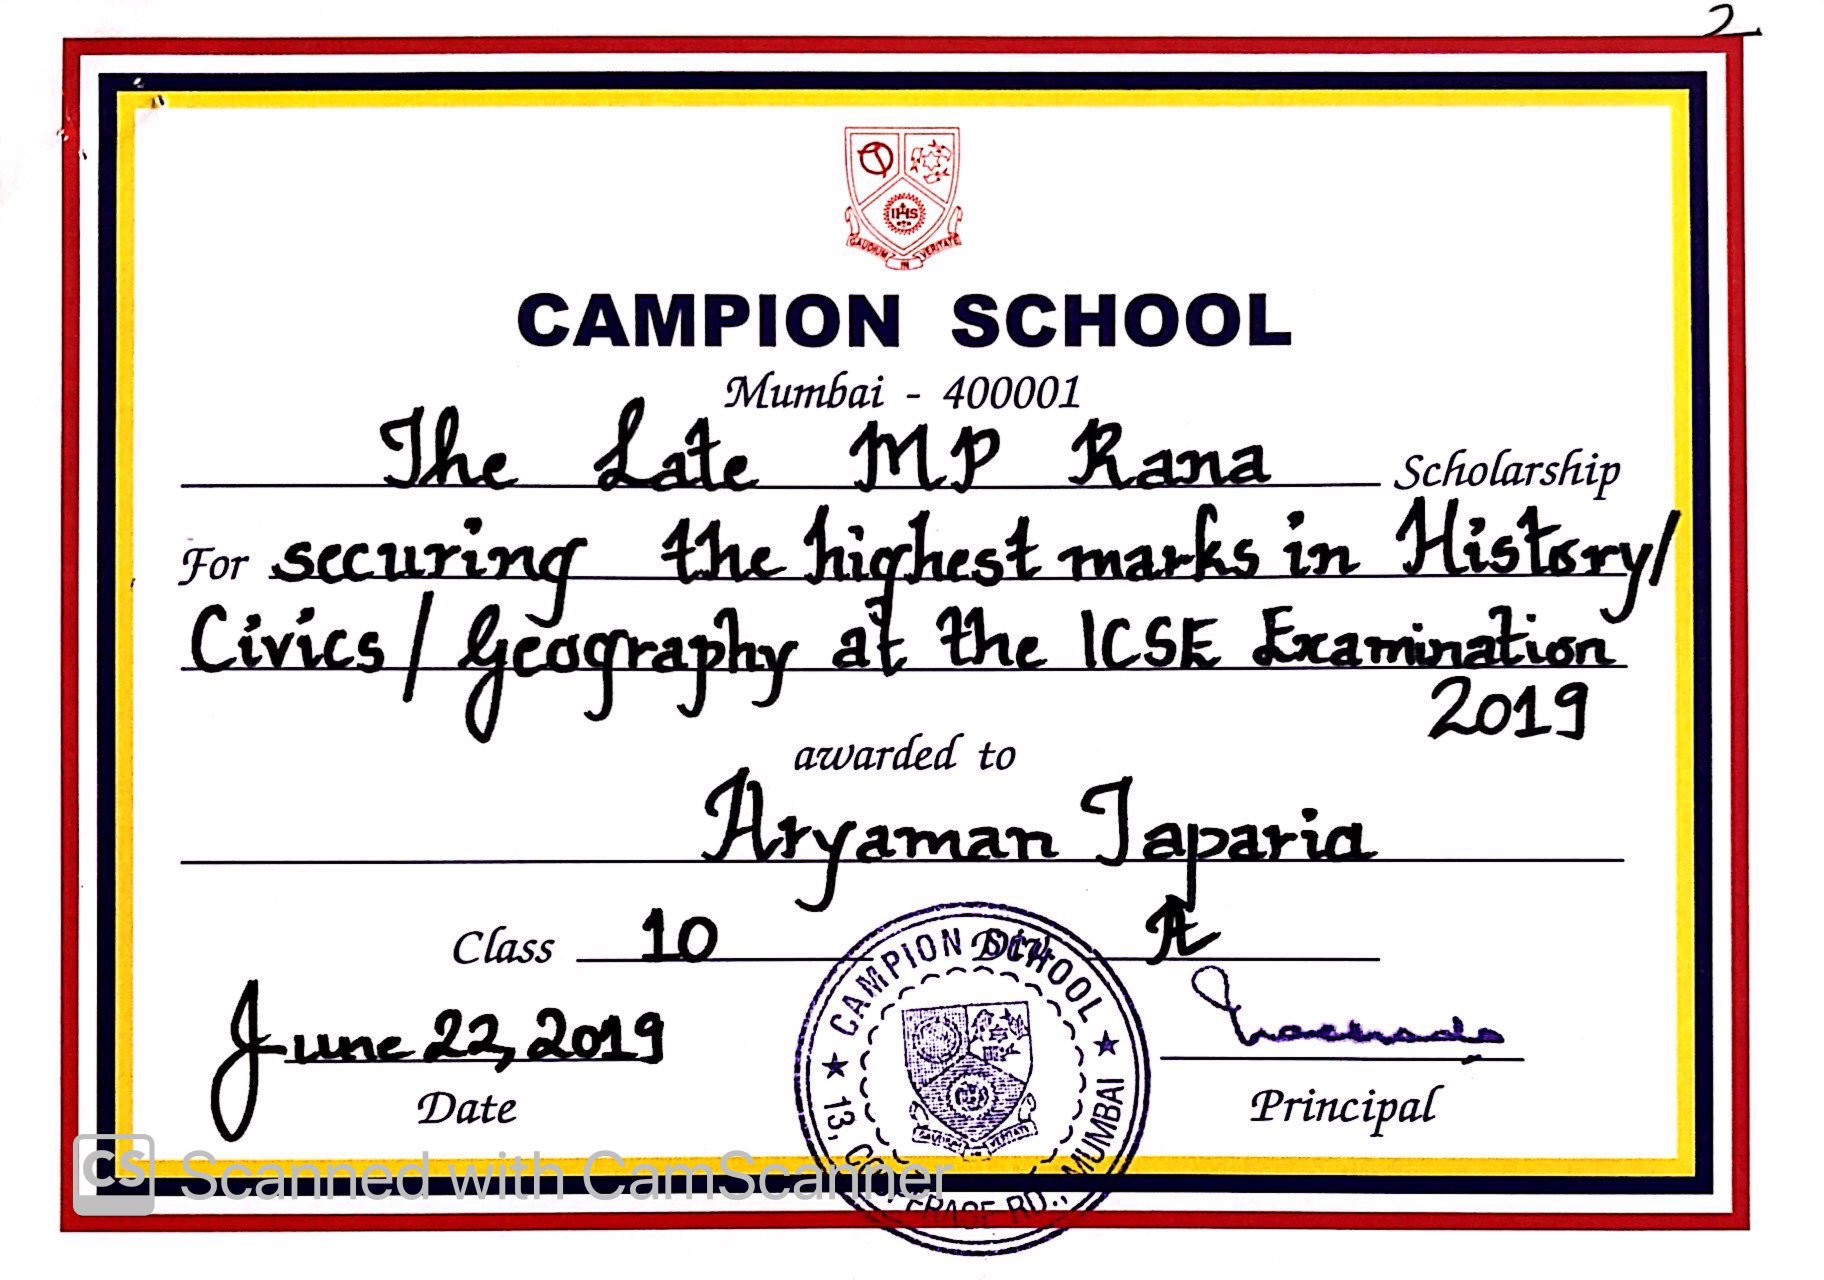 2
IHS
GAUDIUM IN VERITATE
CAMPION SCHOOL
Mumbai - 400001
The Late MP Rana Scholarship
For securing the highest marks in History/
Civics/Geography at the ICSE Examination
2019
awarded to
Aryaman Taparia
Class 10 Div A
June 22, 2019
Date
Principal
CAMPION SCHOOL
13, COOPERAGE RD., MUMBAI
CS Scanned with CamScanner